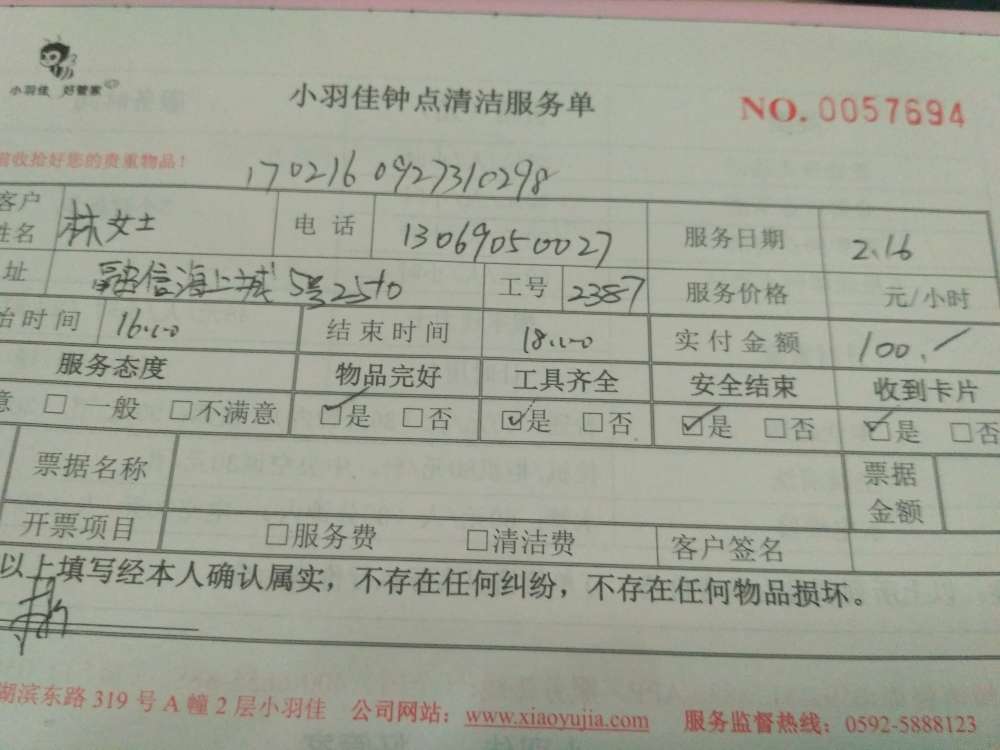 小羽佳 好管家
小羽佳钟点清洁服务单
NO. 0057694
收拾好您的贵重物品！
170216 0927310298
客户姓名 林女士 电话 13069050027 服务日期 2.16
址 融信海上城5号25 工号 2387 服务价格 元/小时
始时间 16:00 结束时间 18:00 实付金额 100.
服务态度 物品完好 工具齐全 安全结束 收到卡片
意 □一般 □不满意 ☑是 □否 ☑是 □否 ☑是 □否 ☑是 □否
票据名称 票据金额
开票项目 □服务费 □清洁费 客户签名
以上填写经本人确认属实，不存在任何纠纷，不存在任何物品损坏。
湖滨东路319号A幢2层小羽佳 公司网站：www.xiaoyujia.com 服务监督热线：0592-5888123